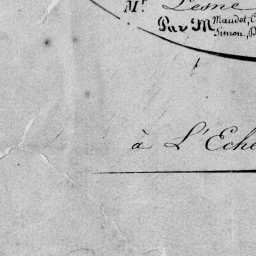 Mr. Lesne
Par M Maudet,
Simon,
à L'Eche